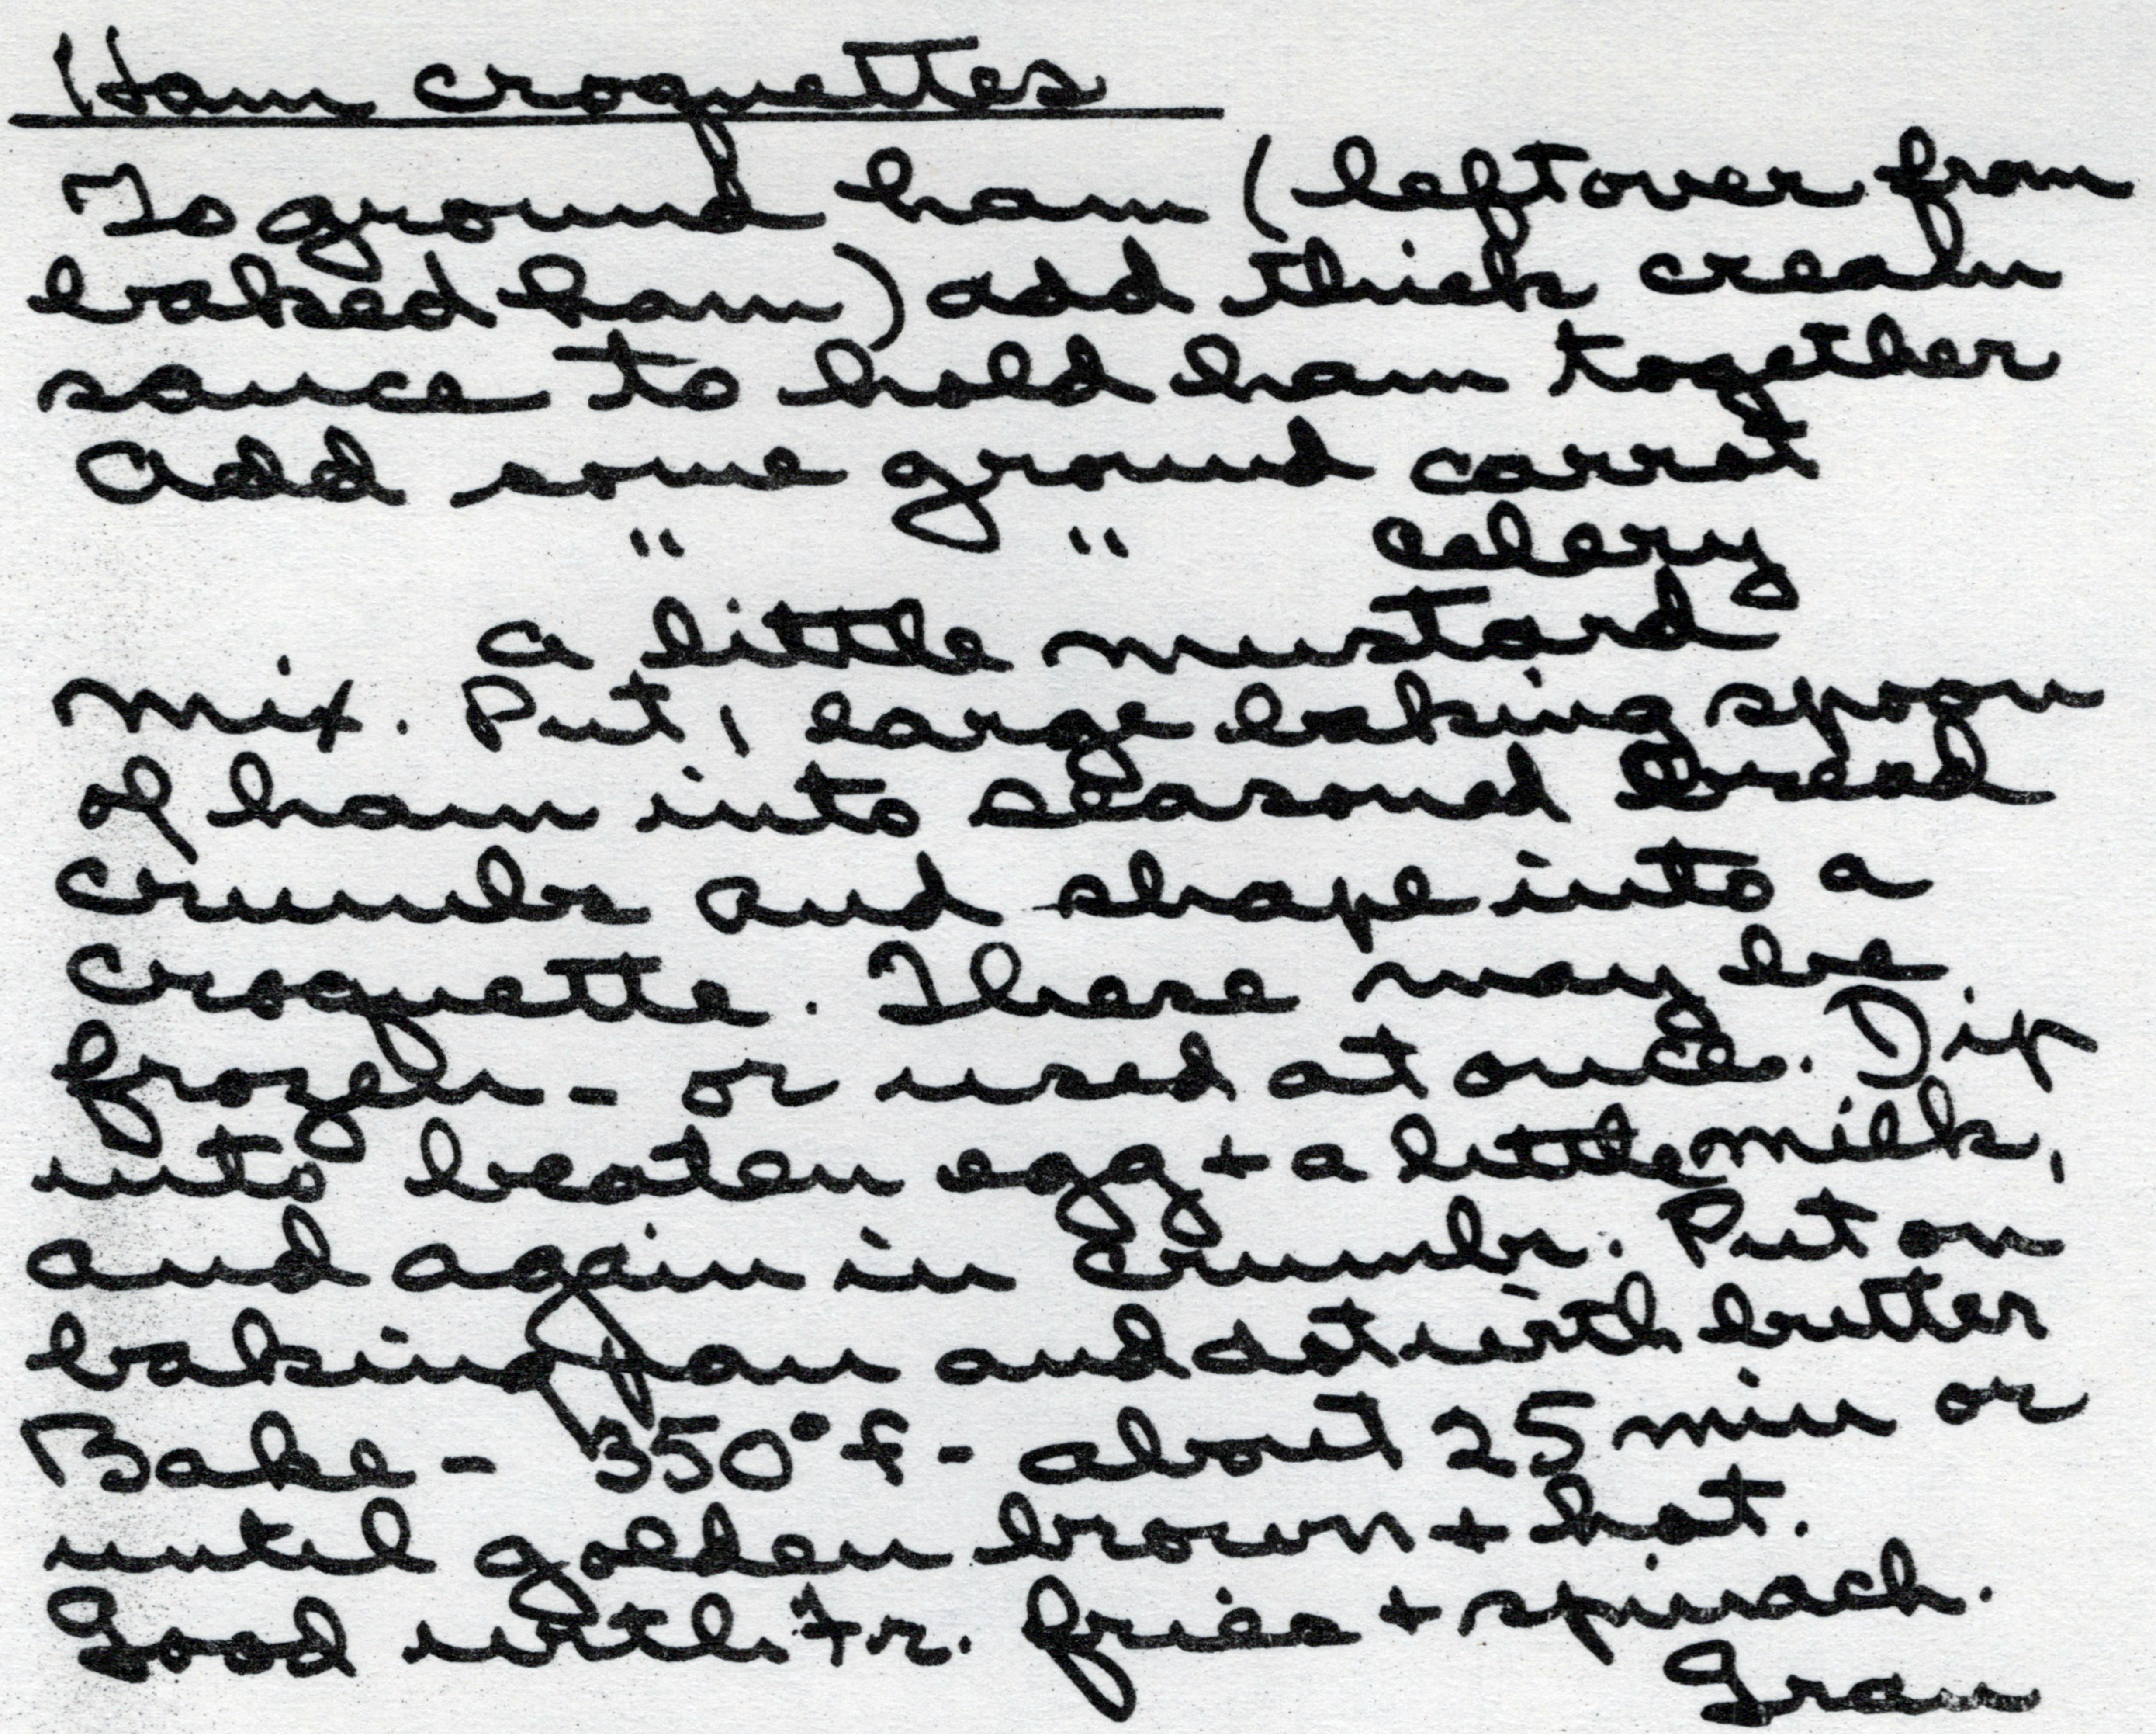 Ham croquettes
To ground ham (leftover from
baked ham) add thick cream
sauce to hold ham together
Add some ground carrot
" " celery
a little mustard
Mix. Put 1 large baking spoon
of ham into seasoned bread
crumbs and shape into a
croquette. These may be
frozen - or used at once. Dip
into beaten egg + a little milk,
and again in crumbs. Put on
baking pan and dot with butter
Bake - 350° f - about 25 min or
until golden brown + hot.
Good with Fr. fries + spinach.
Gram